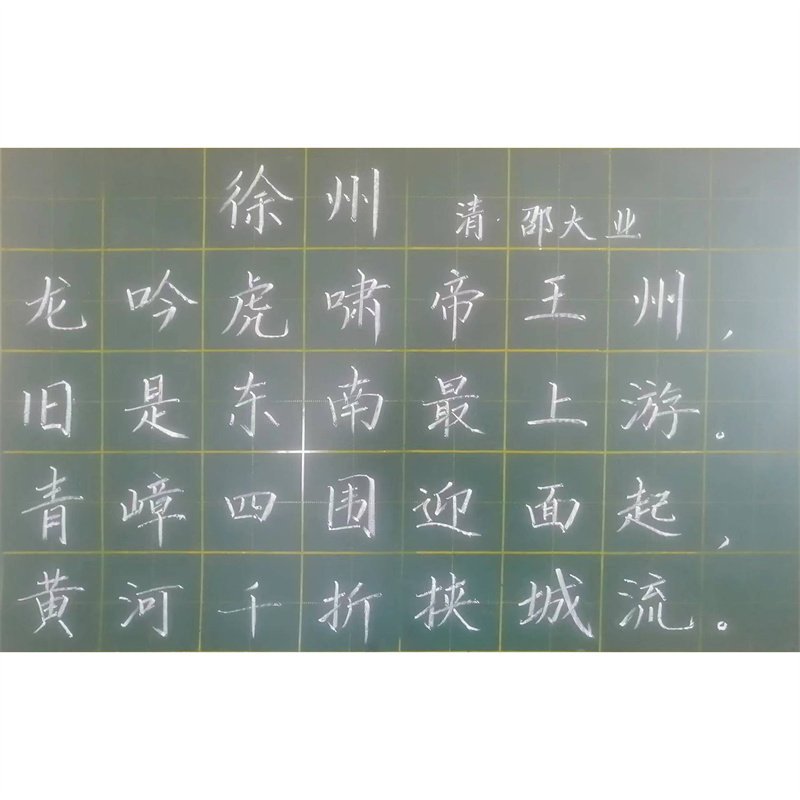 徐州 清·邵大业
龙吟虎啸帝王州，
旧是东南最上游。
青嶂四围迎面起，
黄河千折挟城流。